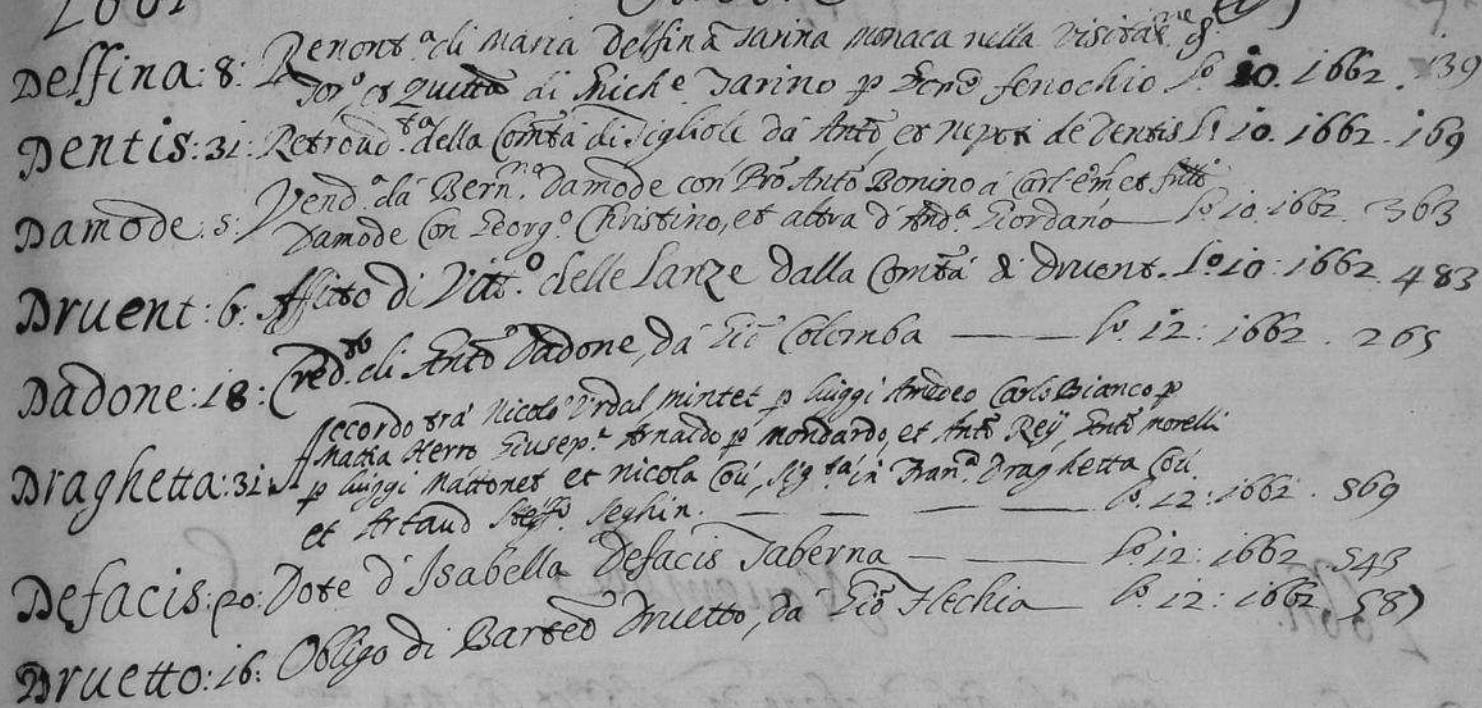 Delfina: 8: Renont.ª di Maria Delfina Tarina Monaca nella Visitat.ne
Tor.º, et Quitta di Mich.e Tarino p fenochio L.º 10. 1662. 139
Dentis: 31: Retrovd.ta della Comtà di Tigliole da Antò, et nepoti de Dentis L.º 10. 1662. 169
Damode: 5: Vend.ª da Bern.no Damode con Pro Antò Bonino a
Damode Con Georg.º Christino, et altra d' And.ª Giordano L.º 10. 1662. 363
Druent: 6: Affitto di Vitt.º delle Lanze dalla Comtà di Druent. L.º 10: 1662. 483
Dadone: 18: Cred.to di Antò Dadone, da Giò Colomba L.º 12: 1662. 265
Accordo trà Nicolò Vrdal, mintet, p luiggi Amedeo Carlo Bianco p
Mattia Herro Giusep.e Arnaldo p mondardo, et Antò Reÿ, Antò morelli
Draghetta: 31: p luiggi Mattonet et nicola Coú, Sig.ra in Fran.ª Draghetta Coú
et Artaud Seghin. L.º 12: 1662. 569
Defacis: 20: Dote d' Isabella Defacis Taberna L.º 12: 1662. 543
Druetto: 16: Obligo di Barteò Druetto, da Giò Flechia L.º 12: 1662. 587